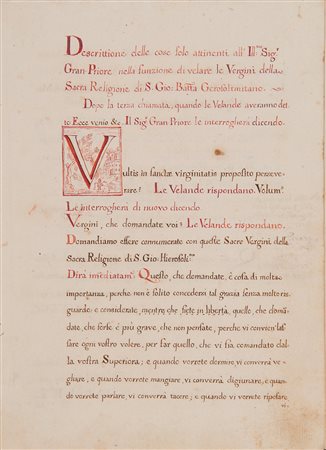 Descrittione delle cose solo attinenti all' Ill.mo Sig.r
Gran Priore nella funzione di velare le Vergini della
Sacra Religione di S. Gio: Batta Gerosolimitano.
Dopo la terza chiamata, quando le Velande averanno det
to Ecce venio &c. Il Sig.r Gran Priore le interrogherà dicendo.
Vultis in sanctæ virginitatis proposito perseve-
rare? Le Velande rispondano. Volum.s
Le interrogherà di nuovo dicendo.
Vergini, che domandate voi? Le Velande rispondano.
Domandiamo essere connumerate con queste Sacre Vergini della
Sacra Religione di S. Gio: Hierosol.no
Dirà imediatam.e Questo, che domandate, è cosa di molta
importanza, perche non è solito concedersi tal grazia senza molto ris-
guardo: e considerate, mentre che siete in libertà, quello, che doman-
date, che forse è più grave, che non pensate, perche vi converrà las-
sare ogni vostro volere, per far quello, che vi sia comandato dal-
la vostra Superiora; e quando vorrete dormire, vi converrà ve-
gliare; e quando vorrete mangiare, vi converrà digiunare; e quan-
do vorrete parlare, vi converrà tacere; e quando vi vorrete riposare